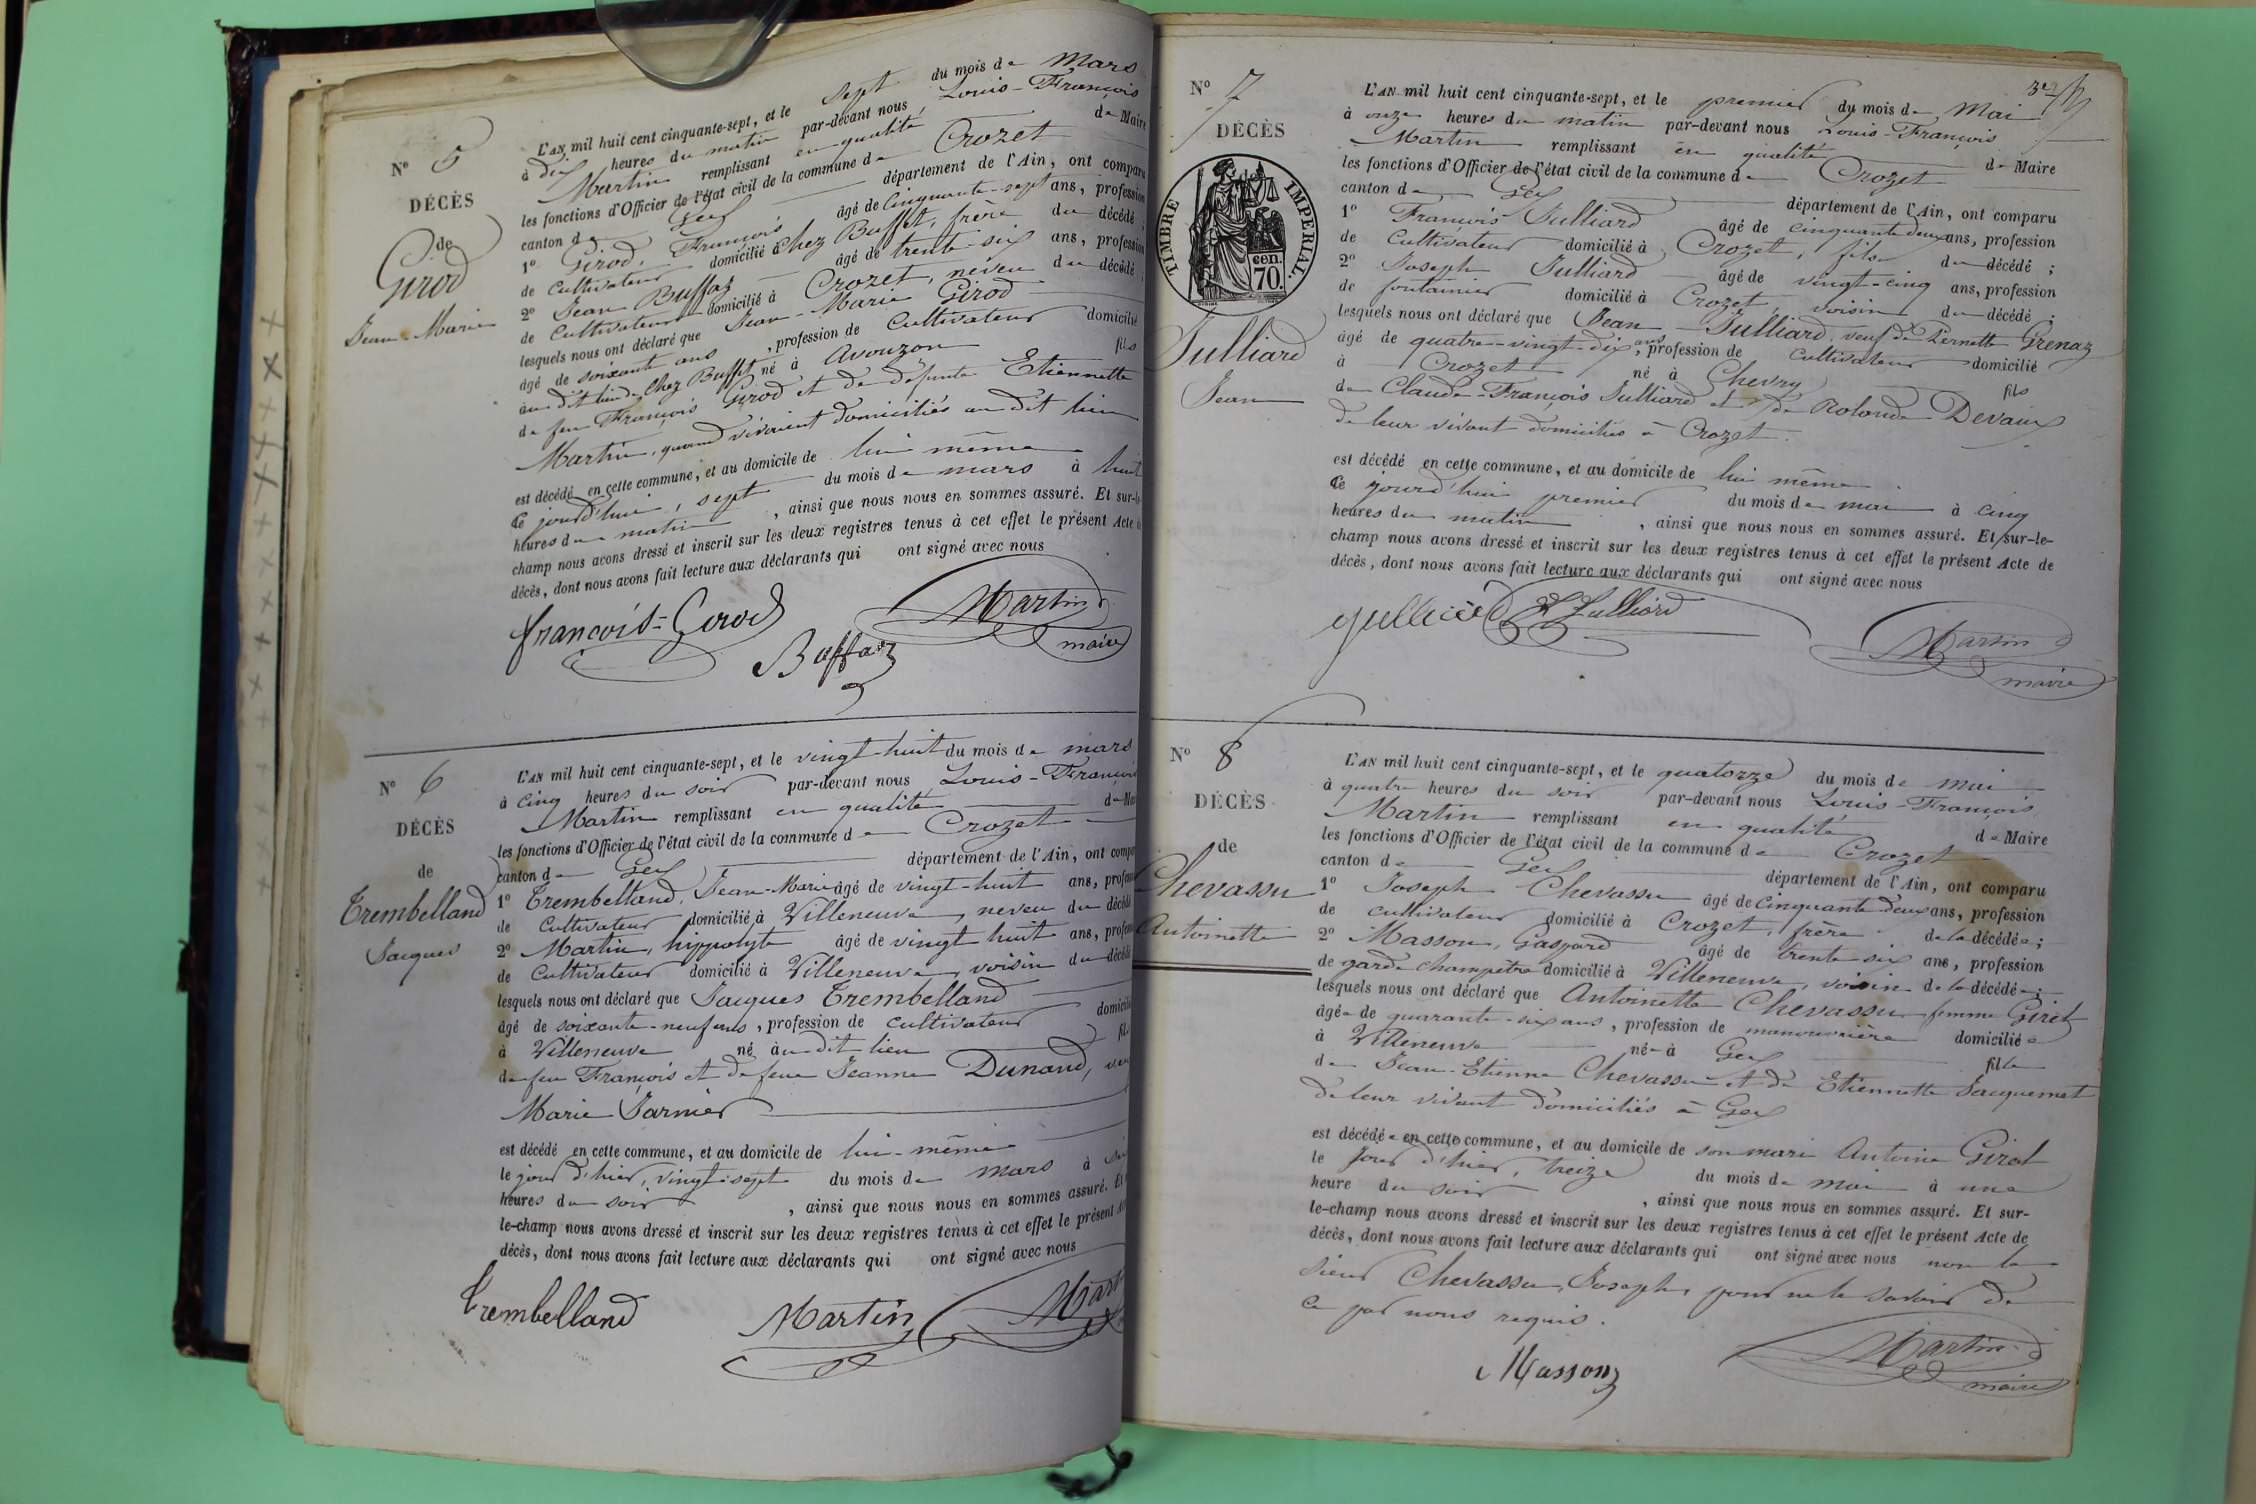 N° 5
DÉCÈS
de
Girod
Jean-Marie
L'AN mil huit cent cinquante-sept, et le sept du mois de Mars
à dix heures du matin par-devant nous Louis-François
Martin remplissant en qualité de Maire
les fonctions d'Officier de l'état civil de la commune de Crozet
canton de Gex département de l'Ain, ont comparu
1° Girod, François âgé de Cinquante-sept ans, profession
de Cultivateur domicilié à Chez Buffet, frère du décédé ;
2° Jean Buffaz âgé de trente-six ans, profession
de Cultivateur domicilié à Crozet, neveu du décédé ;
lesquels nous ont déclaré que Jean-Marie Girod
âgé de soixante ans, profession de Cultivateur domicilié
au dit lieu de Chez Buffet né à Avouzon fils
de feu François Girod et de défunte Etiennette
Martin, quand vivaient domiciliés au dit lieu
est décédé en cette commune, et au domicile de lui même
Ce jourd'hui, sept du mois de mars à huit
heures du matin, ainsi que nous nous en sommes assuré. Et sur-le-
champ nous avons dressé et inscrit sur les deux registres tenus à cet effet le présent Acte de
décès, dont nous avons fait lecture aux déclarants qui ont signé avec nous
François-Girod
Martin
maire
Buffaz
N° 6
DÉCÈS
de
Trembelland
Jacques
L'AN mil huit cent cinquante-sept, et le vingt-huit du mois de mars
à cinq heures du soir par-devant nous Louis-François
Martin remplissant en qualité de Maire
les fonctions d'Officier de l'état civil de la commune de Crozet
canton de Gex département de l'Ain, ont compa
1° Trembelland, Jean-Marie âgé de vingt-huit ans, profess
de Cultivateur domicilié à Villeneuve, neveu du décédé
2° Martin, hippolyte âgé de vingt huit ans, profess
de Cultivateur domicilié à Villeneuve, voisin du décédé
lesquels nous ont déclaré que Jacques Trembelland
âgé de soixante-neuf ans, profession de cultivateur domicilié
à Villeneuve né au dit lieu fils
de feu François et de feue Jeanne Dunand,
Marie Jarnier
est décédé en cette commune, et au domicile de lui-même
le jour d'hier, vingt-sept du mois de mars à
heures du soir, ainsi que nous nous en sommes assuré. Et
le-champ nous avons dressé et inscrit sur les deux registres tenus à cet effet le présent
décès, dont nous avons fait lecture aux déclarants qui ont signé avec nous
Trembelland
Martin
Martin
N° 7
DÉCÈS
TIMBRE IMPERIAL.
cen.
70.
Julliard
Jean
L'AN mil huit cent cinquante-sept, et le premier du mois de Mai
à onze heures du matin par-devant nous Louis-François
Martin remplissant en qualité de Maire
les fonctions d'Officier de l'état civil de la commune de Crozet
canton de Gex département de l'Ain, ont comparu
1° François Julliard âgé de cinquante deux ans, profession
de Cultivateur domicilié à Crozet, fils du décédé ;
2° Joseph Julliard âgé de vingt-cinq ans, profession
de fontainier domicilié à Crozet, voisin du décédé ;
lesquels nous ont déclaré que Jean Julliard, veuf de Pernette Grenaz
âgé de quatre-vingt-dix ans, profession de Cultivateur domicilié
à Crozet né à Chevry fils
de Claude-François Julliard et de Rolande Devaux
de leur vivant domiciliés à Crozet.
est décédé en cette commune, et au domicile de lui même
Ce jourd'hui premier du mois de mai à cinq
heures du matin, ainsi que nous nous en sommes assuré. Et sur-le-
champ nous avons dressé et inscrit sur les deux registres tenus à cet effet le présent Acte de
décès, dont nous avons fait lecture aux déclarants qui ont signé avec nous
Julliard
Martin
maire
N° 8
DÉCÈS
de
Chevassu
Antoinette
L'AN mil huit cent cinquante-sept, et le quatorze du mois de mai
à quatre heures du soir par-devant nous Louis-François
Martin remplissant en qualité de Maire
les fonctions d'Officier de l'état civil de la commune de Crozet
canton de Gex département de l'Ain, ont comparu
1° Joseph Chevassu âgé de Cinquante deux ans, profession
de cultivateur domicilié à Crozet, frère de la décédée ;
2° Masson, Gaspard âgé de trente six ans, profession
de garde champêtre domicilié à Villeneuve, voisin de la décédée ;
lesquels nous ont déclaré que Antoinette Chevassu femme Girod
âgée de quarante-six ans, profession de manouvrière domiciliée
à Villeneuve née à Gex fille
de Jean-Etienne Chevassu et de Etiennette Jacquemet
de leur vivant domiciliés à Gex
est décédée en cette commune, et au domicile de son mari Antoine Girod
le jour d'hier, treize du mois de mai à une
heure du soir, ainsi que nous nous en sommes assuré. Et sur-
le-champ nous avons dressé et inscrit sur les deux registres tenus à cet effet le présent Acte de
décès, dont nous avons fait lecture aux déclarants qui ont signé avec nous non le
sieur Chevassu, Joseph, pour ne le savoir de
ce par nous requis.
Masson
Martin
maire